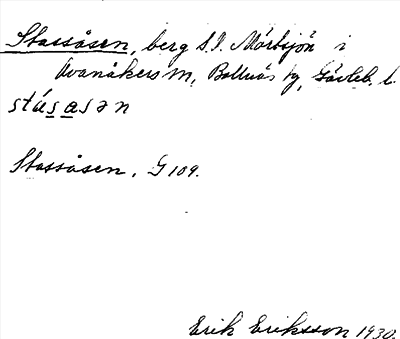 Stassåsen, berg S.I. Mårtsjön i
Ovanåkers sn, Bollnäs tg, Gävleb. l.
stásasən
Stassåsen, G 109.
Erik Eriksson 1930.